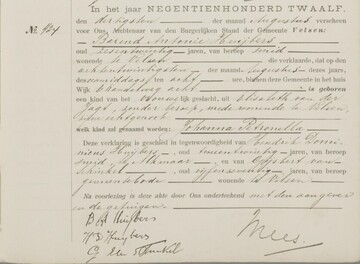 In het jaar NEGENTIENHONDERD TWAALF,
den dertigsten der maand Augustus verscheen
voor Ons, Ambtenaar van den Burgerlijken Stand der Gemeente Velsen:
No. 424 Barend Antonie Huijbers
oud zevenentwintig jaren, van beroep smid
wonende te Velsen die verklaarde, dat op den
achtentwintigsten der maand Augustus dezes jaars,
des namiddags ure, binnen deze Gemeente in het huis
Wijk acht is geboren
een kind van het vrouwelijk geslacht, uit Elisabeth van der
Jagt, zonder beroep, mede wonende te Velsen,
zijne echtgenoot
welk kind zal genaamd worden: Johanna Petronella
Deze verklaring is geschied in tegenwoordigheid van Hendrik Domi-
nicus Huijbers, oud jaren, van beroep
smid, te Alkmaar en van Gijsbert van
Schinkel, oud vijfenzestig jaren, van beroep
gemeentebode wonende te Velsen
Na voorlezing is deze akte door Ons onderteekend met den aangever
en de getuigen.
B A Huijbers
H D Huijbers